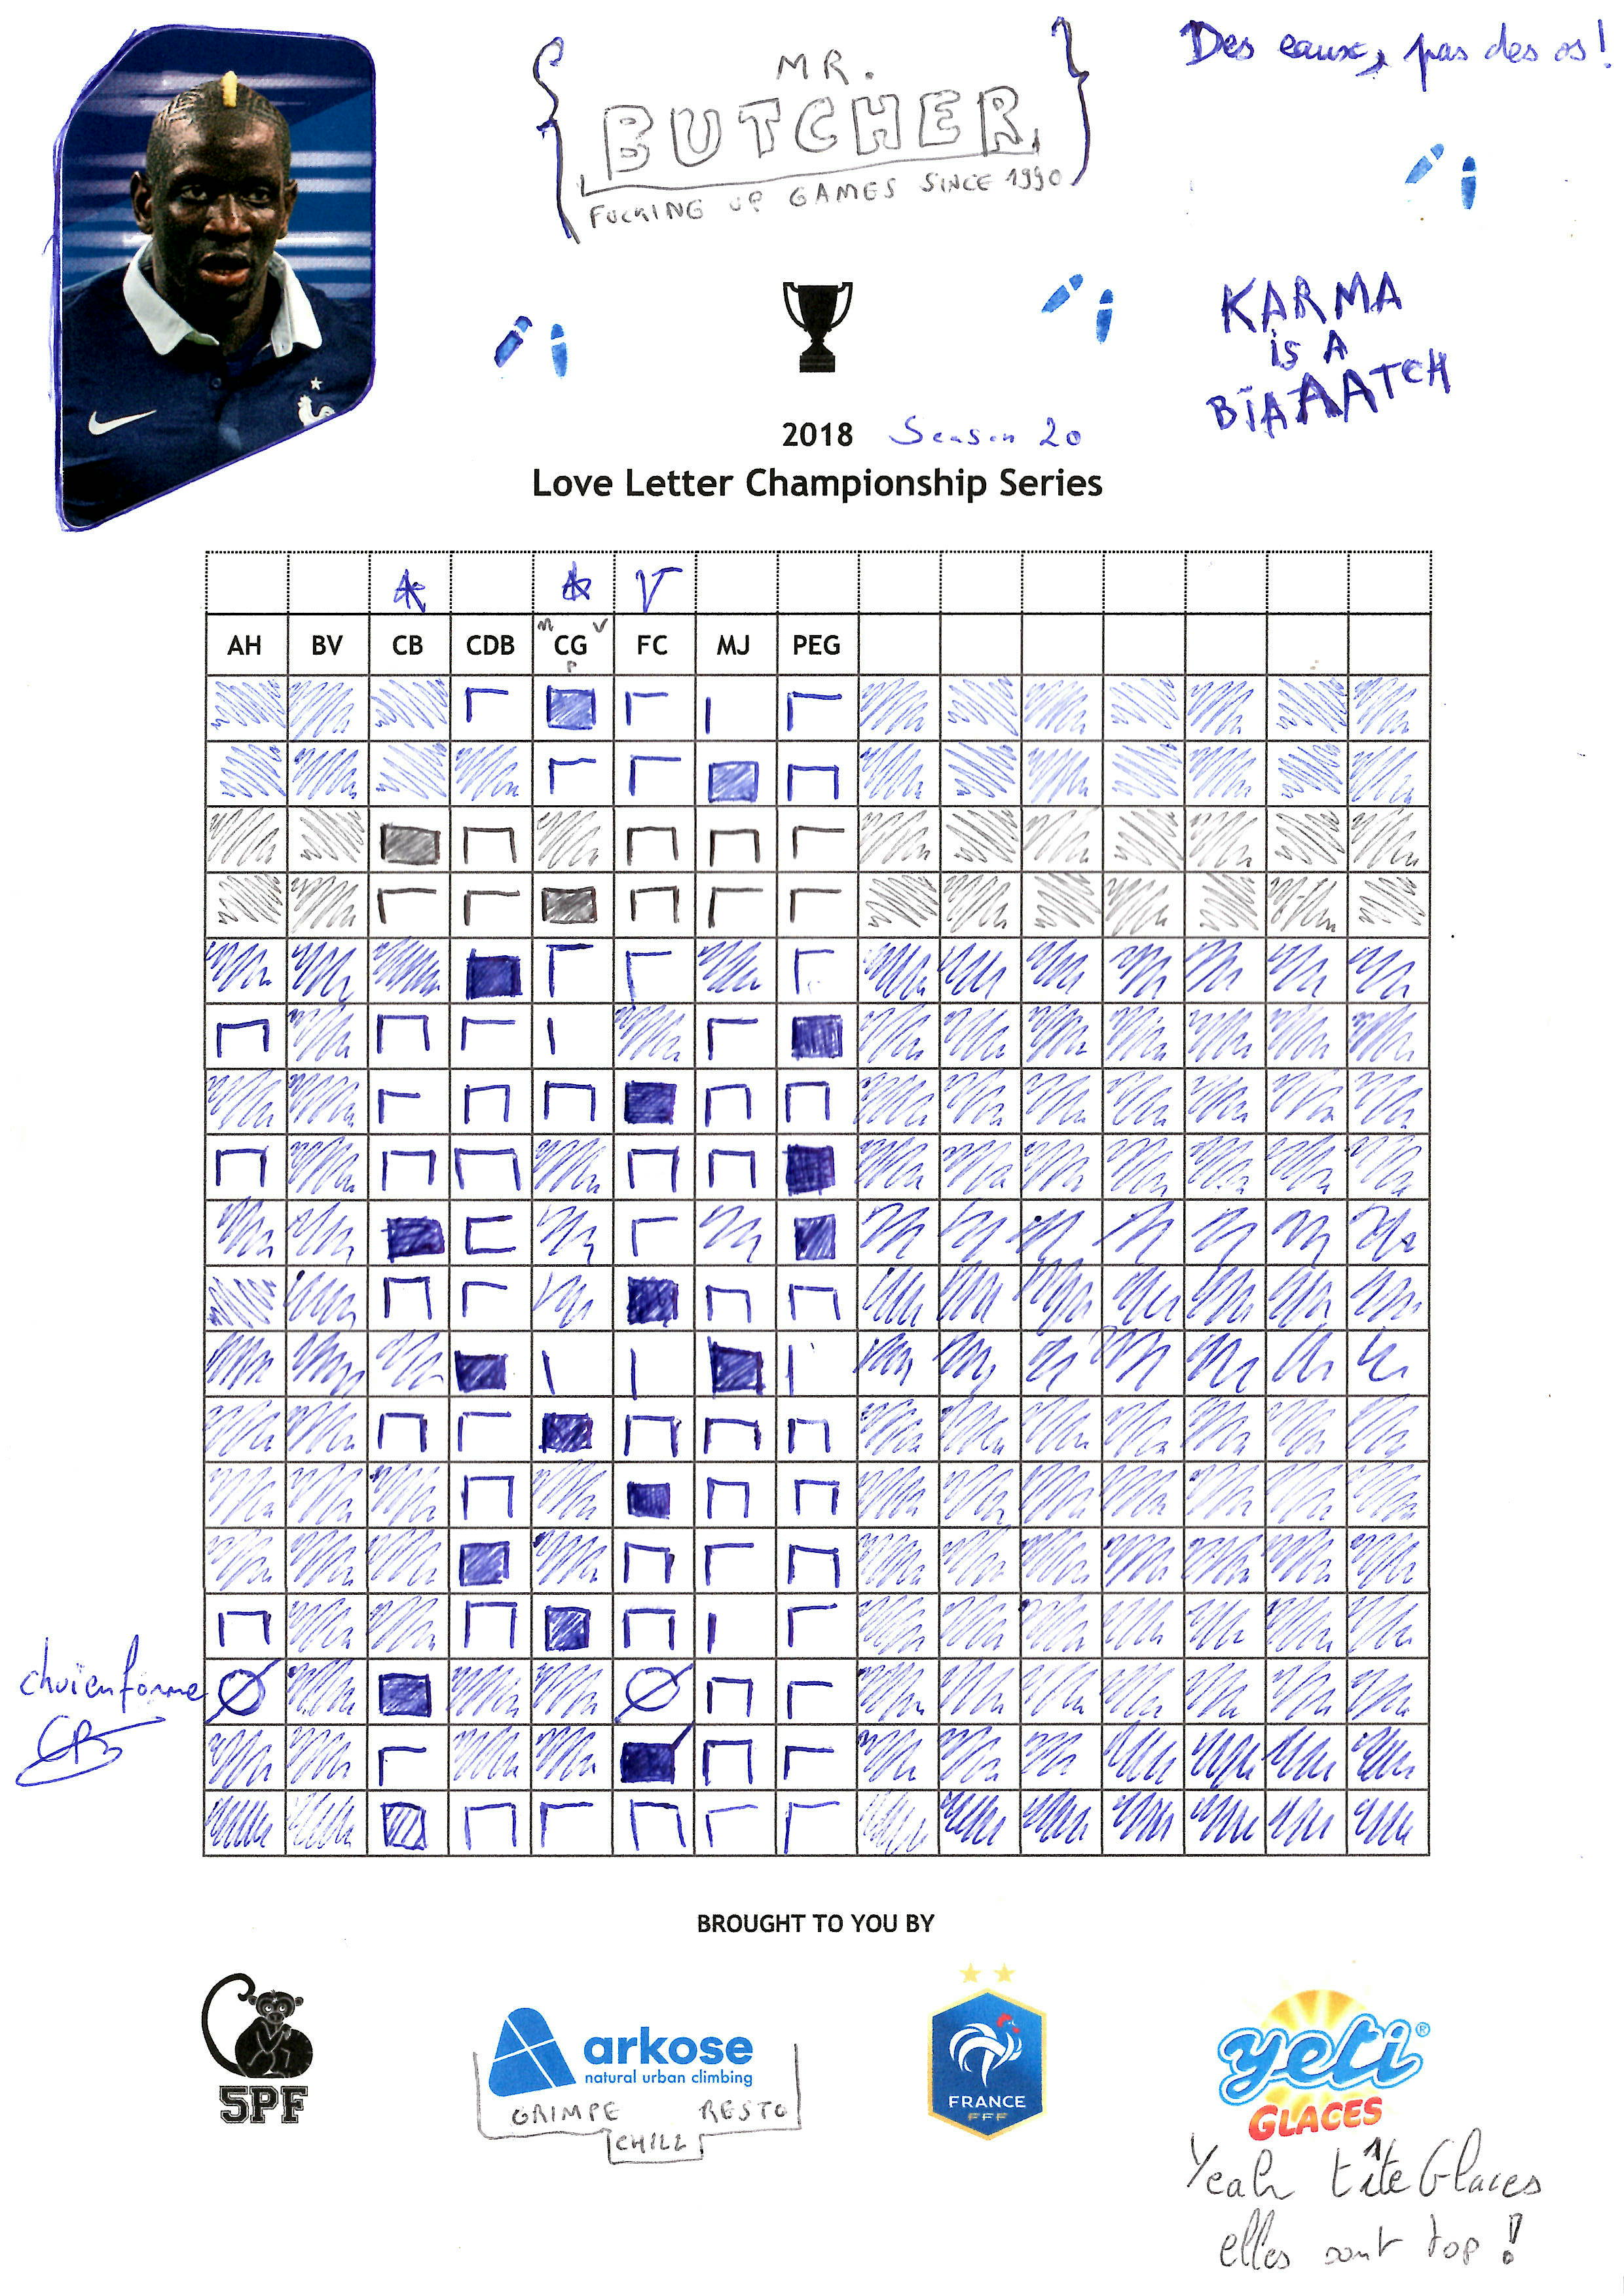 Des eaux, pas des os!
MR.
BUTCHER
FUCKING UP GAMES SINCE 1990
KARMA
is A
BIAAAATCH
2018 Season 20
Love Letter Championship Series
V
AH BV CB CDB CG FC MJ PEG
M V
P
chuienforme
BROUGHT TO YOU BY
5PF
arkose
natural urban climbing
GRIMPE RESTO
CHILL
FRANCE
FFF
yeti®
GLACES
Yeah tite Glaces
elles sont top !